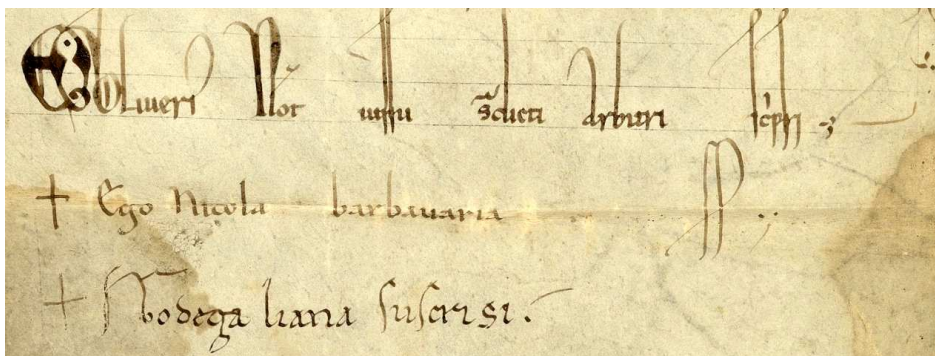 Ego Oliveri Not iussu scd̄icti arbitri scpsi
† Ego Nicola barbavaria SS
† bodega liana suscrisi.